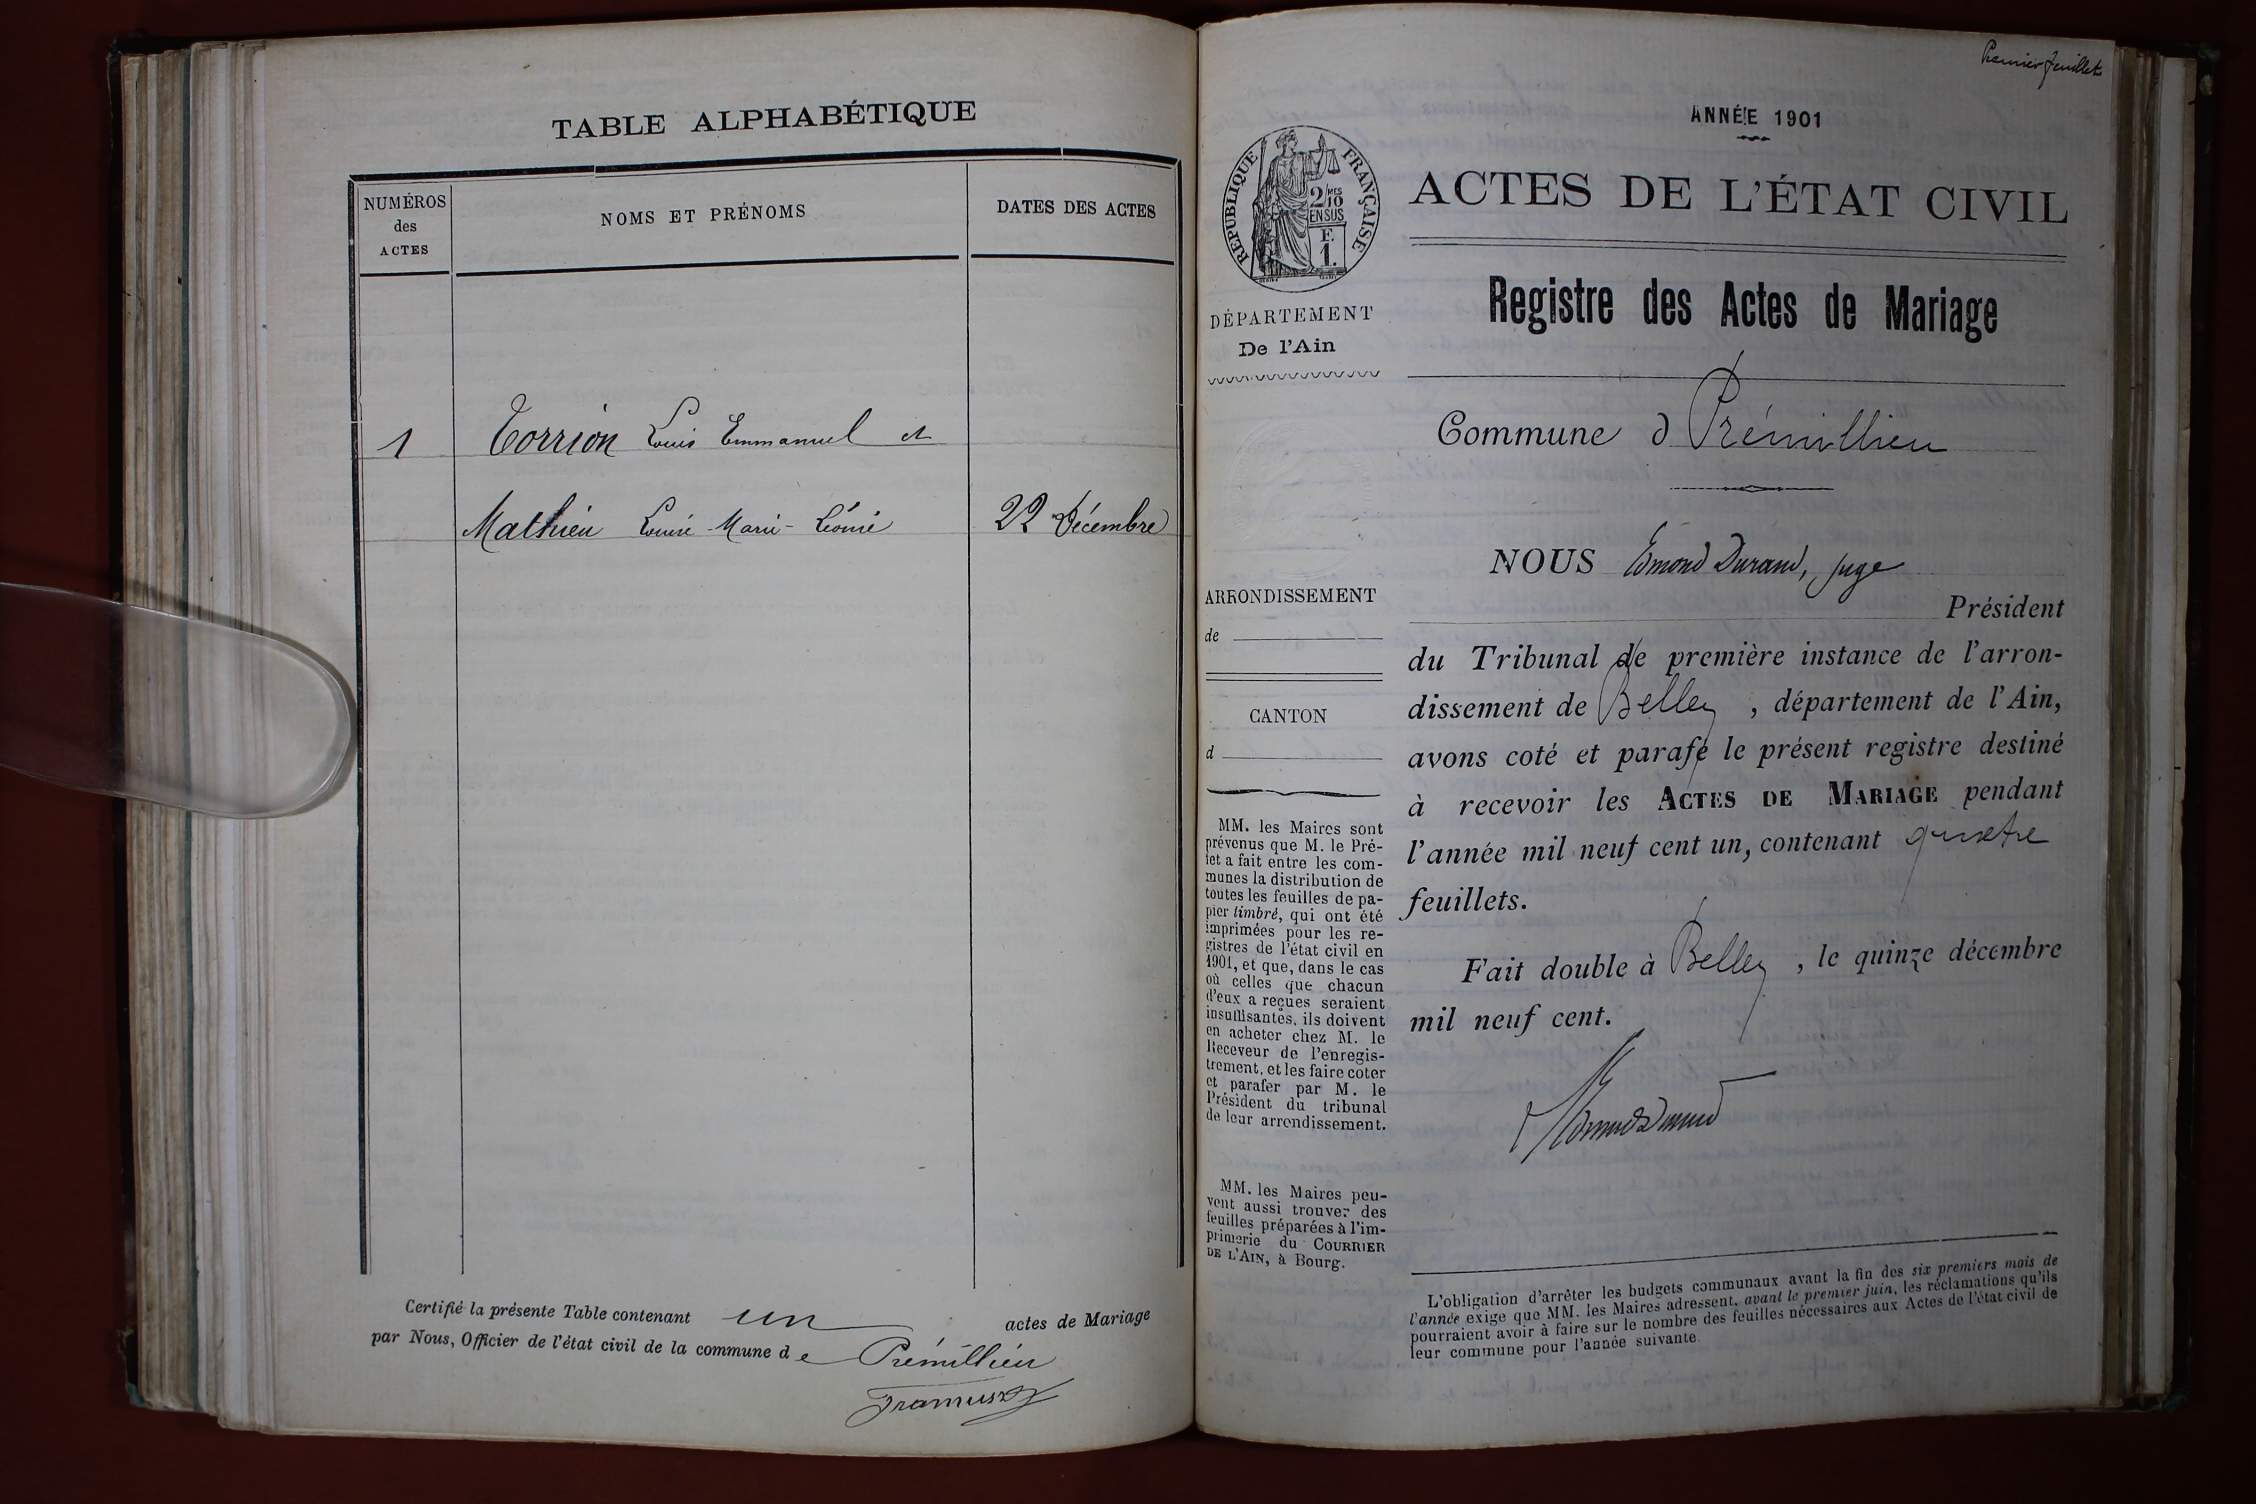 TABLE ALPHABÉTIQUE
NUMÉROS
des
ACTES
NOMS ET PRÉNOMS
DATES DES ACTES
1
Torrion Louis Emmanuel et
Mathieu Louise Marie-Léonie
22 Décembre
Certifié la présente Table contenant un actes de Mariage
par Nous, Officier de l'état civil de la commune de Prémillieu
Premier feuillet
ANNÉE 1901
RÉPUBLIQUE FRANÇAISE
2/10 MES
EN SUS
F.
1.
ACTES DE L'ÉTAT CIVIL
Registre des Actes de Mariage
DÉPARTEMENT
De l'Ain
Commune d Prémillieu
ARRONDISSEMENT
de
CANTON
d
MM. les Maires sont
prévenus que M. le Pré-
fet a fait entre les com-
munes la distribution de
toutes les feuilles de pa-
pier timbré, qui ont été
imprimées pour les re-
gistres de l'état civil en
1901, et que, dans le cas
où celles que chacun
d'eux a reçues seraient
insuffisantes, ils doivent
en acheter chez M. le
Receveur de l'enregis-
trement, et les faire coter
et parafer par M. le
Président du tribunal
de leur arrondissement.
MM. les Maires peu-
vent aussi trouver des
feuilles préparées à l'im-
primerie du COURRIER
DE L'AIN, à Bourg.
NOUS Edmond Durand, juge
Président
du Tribunal de première instance de l'arron-
dissement de Belley, département de l'Ain,
avons coté et parafé le présent registre destiné
à recevoir les ACTES DE MARIAGE pendant
l'année mil neuf cent un, contenant quatre
feuillets.
Fait double à Belley, le quinze décembre
mil neuf cent.
Edmond Durand
L'obligation d'arrêter les budgets communaux avant la fin des six premiers mois de
l'année exige que MM. les Maires adressent, avant le premier juin, les réclamations qu'ils
pourraient avoir à faire sur le nombre des feuilles nécessaires aux Actes de l'état civil de
leur commune pour l'année suivante.